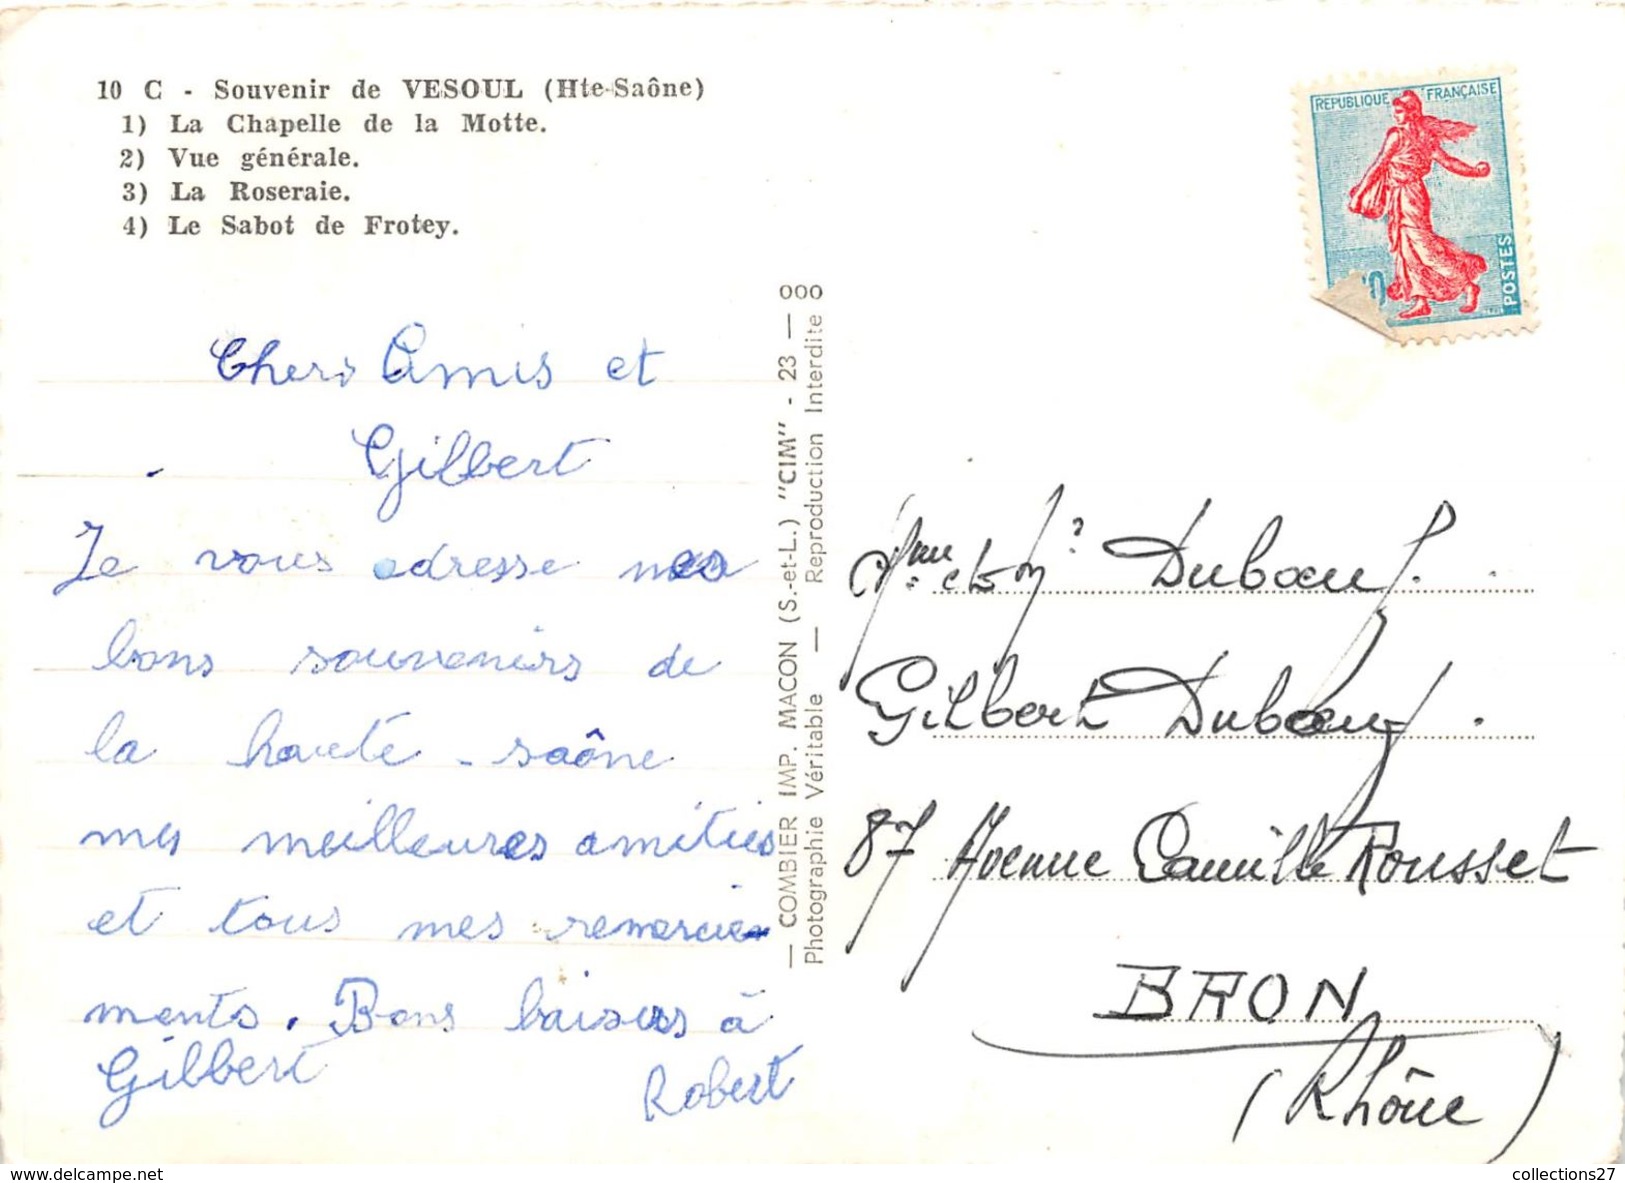 10 C - Souvenir de VESOUL (Hte-Saône)
1) La Chapelle de la Motte.
2) Vue générale.
3) La Roseraie.
4) Le Sabot de Frotey.
REPUBLIQUE FRANÇAISE
POSTES
Chers Amis et
Gilbert
Je vous adresse mes
bons souvenirs de
la haute - saône
mes meilleures amitiés
et tous mes remercie-
ments. Bons baisers à
Gilbert
Robert
— COMBIER IMP. MACON (S.-et-L.) "CIM" - 23 — 000
Photographie Véritable — Reproduction Interdite 000
et Duboeuf.
Gilbert Duboeuf.
87 Avenue Camille Rousset
BRON
(Rhône)
collections27